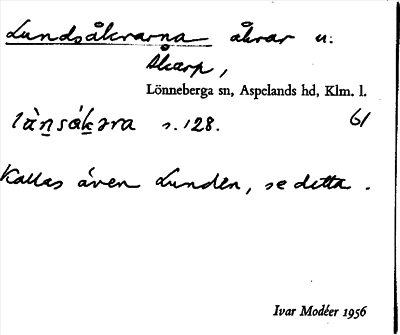 Lundsåkrarna åkrar u.
Åkarp,
Lönneberga sn, Aspelands hd, Klm. l.
61
s. 128.
Kallas även Lunden, se detta.
Ivar Modéer 1956